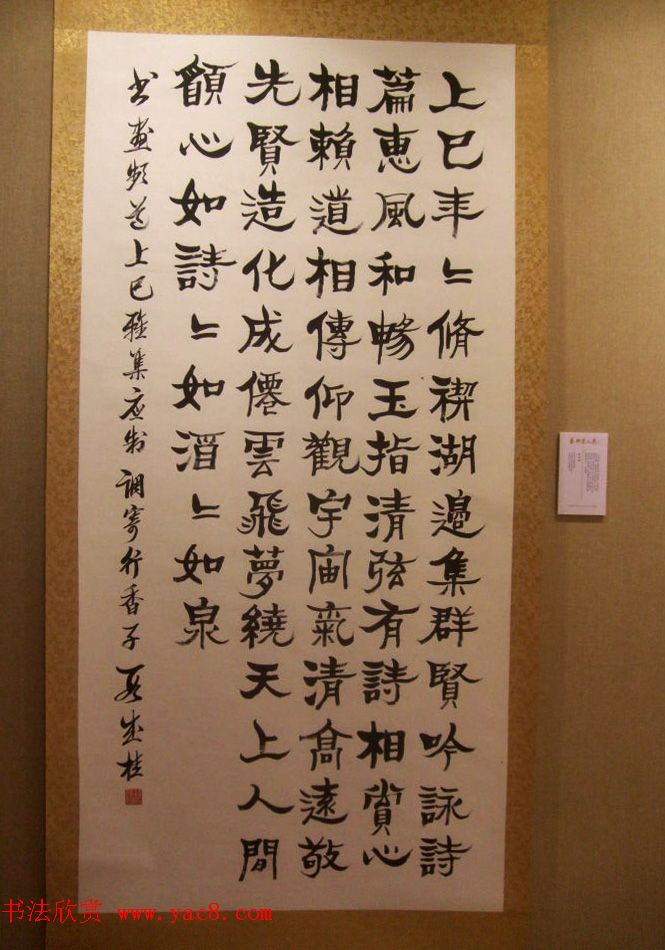 上巳年〻脩禊湖邉集群賢吟詠詩
篇惠風和暢玉指清弦有詩相賞心
相賴道相傳仰觀宇廟氣清高遠敬
先賢造化成僊雲飛夢繞天上人間
願心如詩〻如酒〻如泉
書畫頻道上巳雅集应制 調寄行香子 成桂
书法欣赏 www.yac8.com